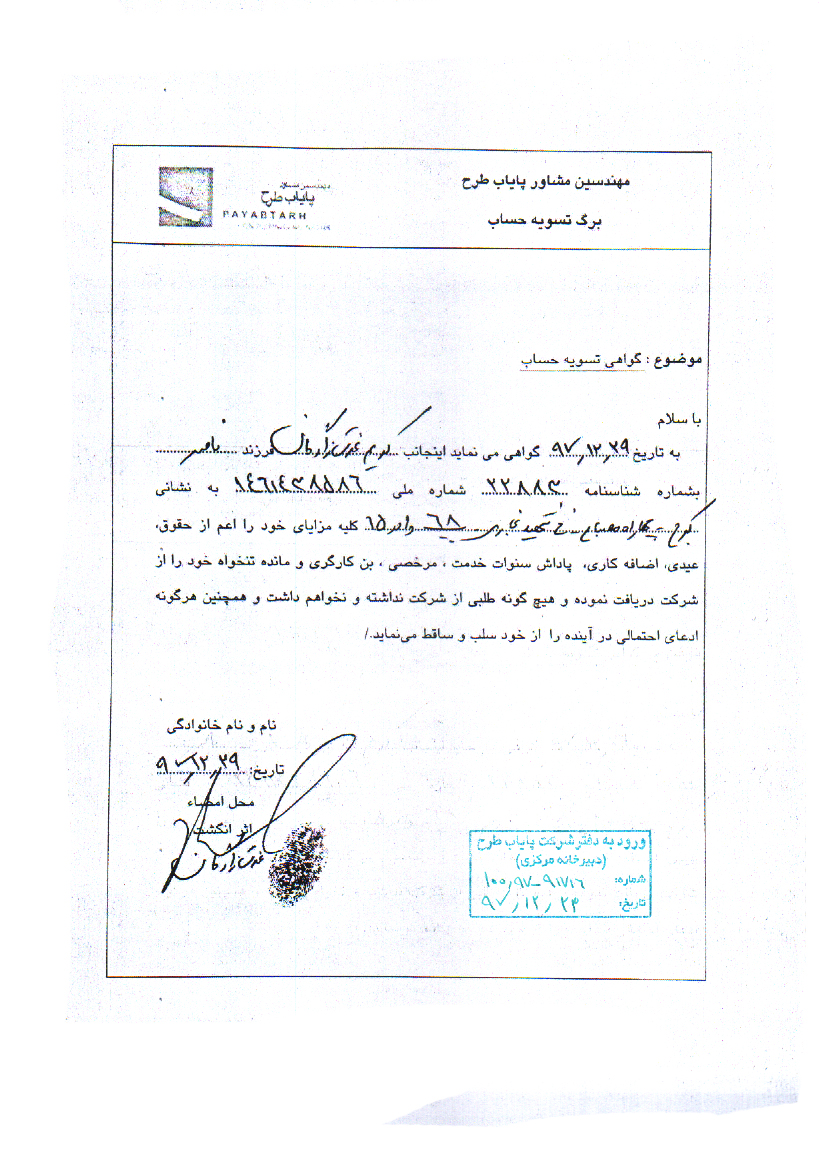 مهندسین مشاور پایاب طرح
برگ تسویه حساب
مهندسین مشاور
پایاب طرح
PAYABTARH
موضوع : گواهی تسویه حساب
با سلام
به تاریخ ۹۷,۱۲,۲۹ گواهی می نماید اینجانب کریم فرزند ناصر
بشماره شناسنامه ۲۲۸۸۳ شماره ملی ۱۴۶۱۴۳۸۵۸۶ به نشانی
کرج - ۶۸ واحد ۶۵ کلیه مزایای خود را اعم از حقوق،
عیدی، اضافه کاری، پاداش سنوات خدمت ، مرخصی ، بن کارگری و مانده تنخواه خود را از
شرکت دریافت نموده و هیچ گونه طلبی از شرکت نداشته و نخواهم داشت و همچنین هرگونه
ادعای احتمالی در آینده را از خود سلب و ساقط می‌نماید./
نام و نام خانوادگی
تاریخ: ۹۷,۱۲,۲۹
محل امضاء
اثر انگشت
ورود به دفتر شرکت پایاب طرح
(دبیرخانه مرکزی)
شماره: ۱۰۰,۹۷-۹۱۷۱۶
تاریخ: ۹۷/۱۲/۲۳